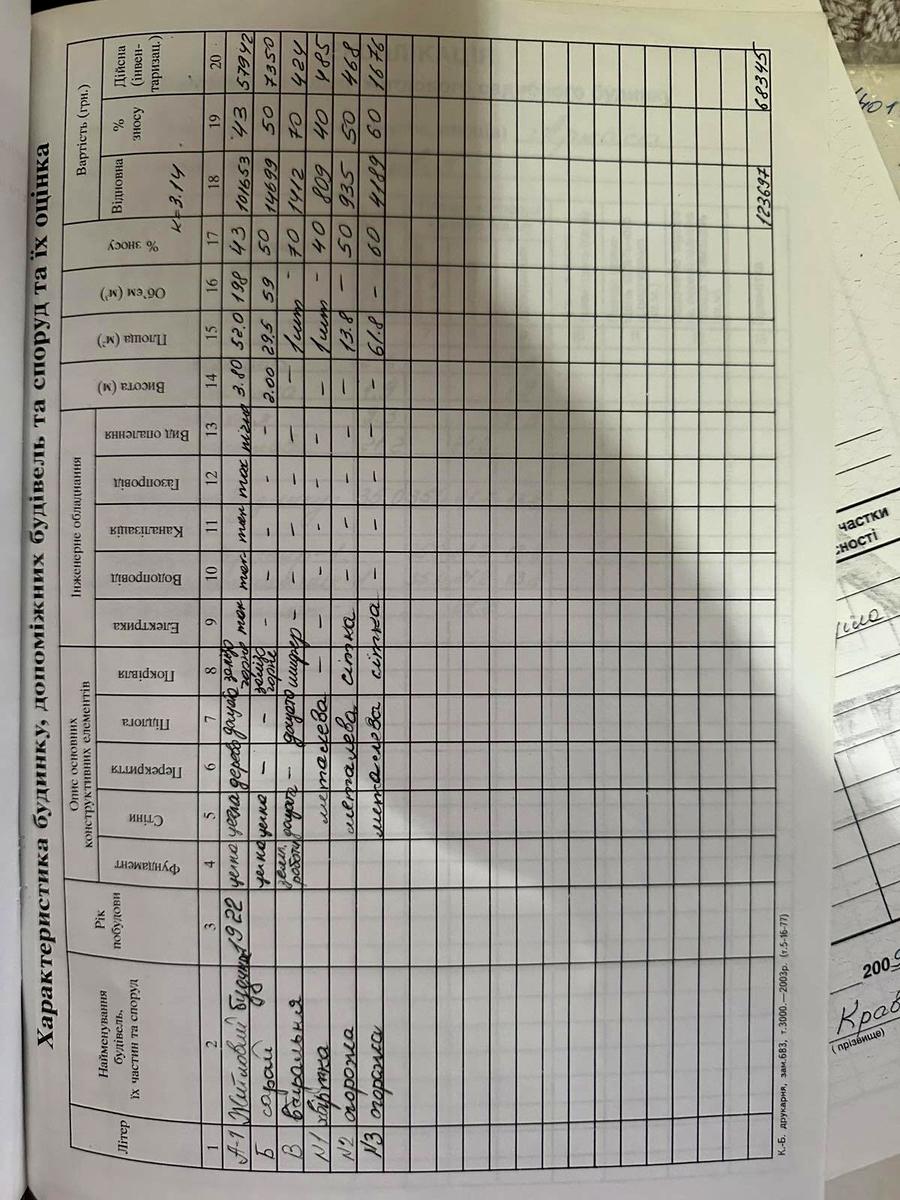 Характеристика будинку, допоміжних будівель та споруд та їх оцінка
Літер
Найменування будівель, їх частин та споруд
Рік побудови
Опис основних конструктивних елементів
Фундамент
Стіни
Перекриття
Підлога
Покрівля
Інженерне обладнання
Електрика
Водопровід
Каналізація
Газопровід
Вид опалення
Висота (м)
Площа (м²)
Об'єм (м³)
% зносу
Вартість (грн.)
Відновна
% зносу
Дійсна (інвентаризац.)
к=3.14
1 2 3 4 5 6 7 8 9 10 11 12 13 14 15 16 17 18 19 20
А-1 Житловий будинок 1922 цегла цегла дерево дощато залізо горне так так так так пічне 3.80 52.0 198 43 101653 43 57942
Б сарай цегла цегла – – залізо горне – – – – – 2.00 29.5 59 50 14699 50 7350
В вбиральня земл. роботи дощата – дощато шифер – – – – – – 1шт - 70 1412 70 424
N1 хвіртка металева – – – – – – – 1шт - 40 809 40 485
N2 огорожа металева сітка – – – – – 13.8 – 50 935 50 468
N3 огорожа металева сітка – – – – – 61.8 – 60 4189 60 1676
123697 68345
К.-Б. друкарня, зам.683, т.3000.—2003р. (т.5-16-77)
401
частки
ності
200
Крав
(прізвище)